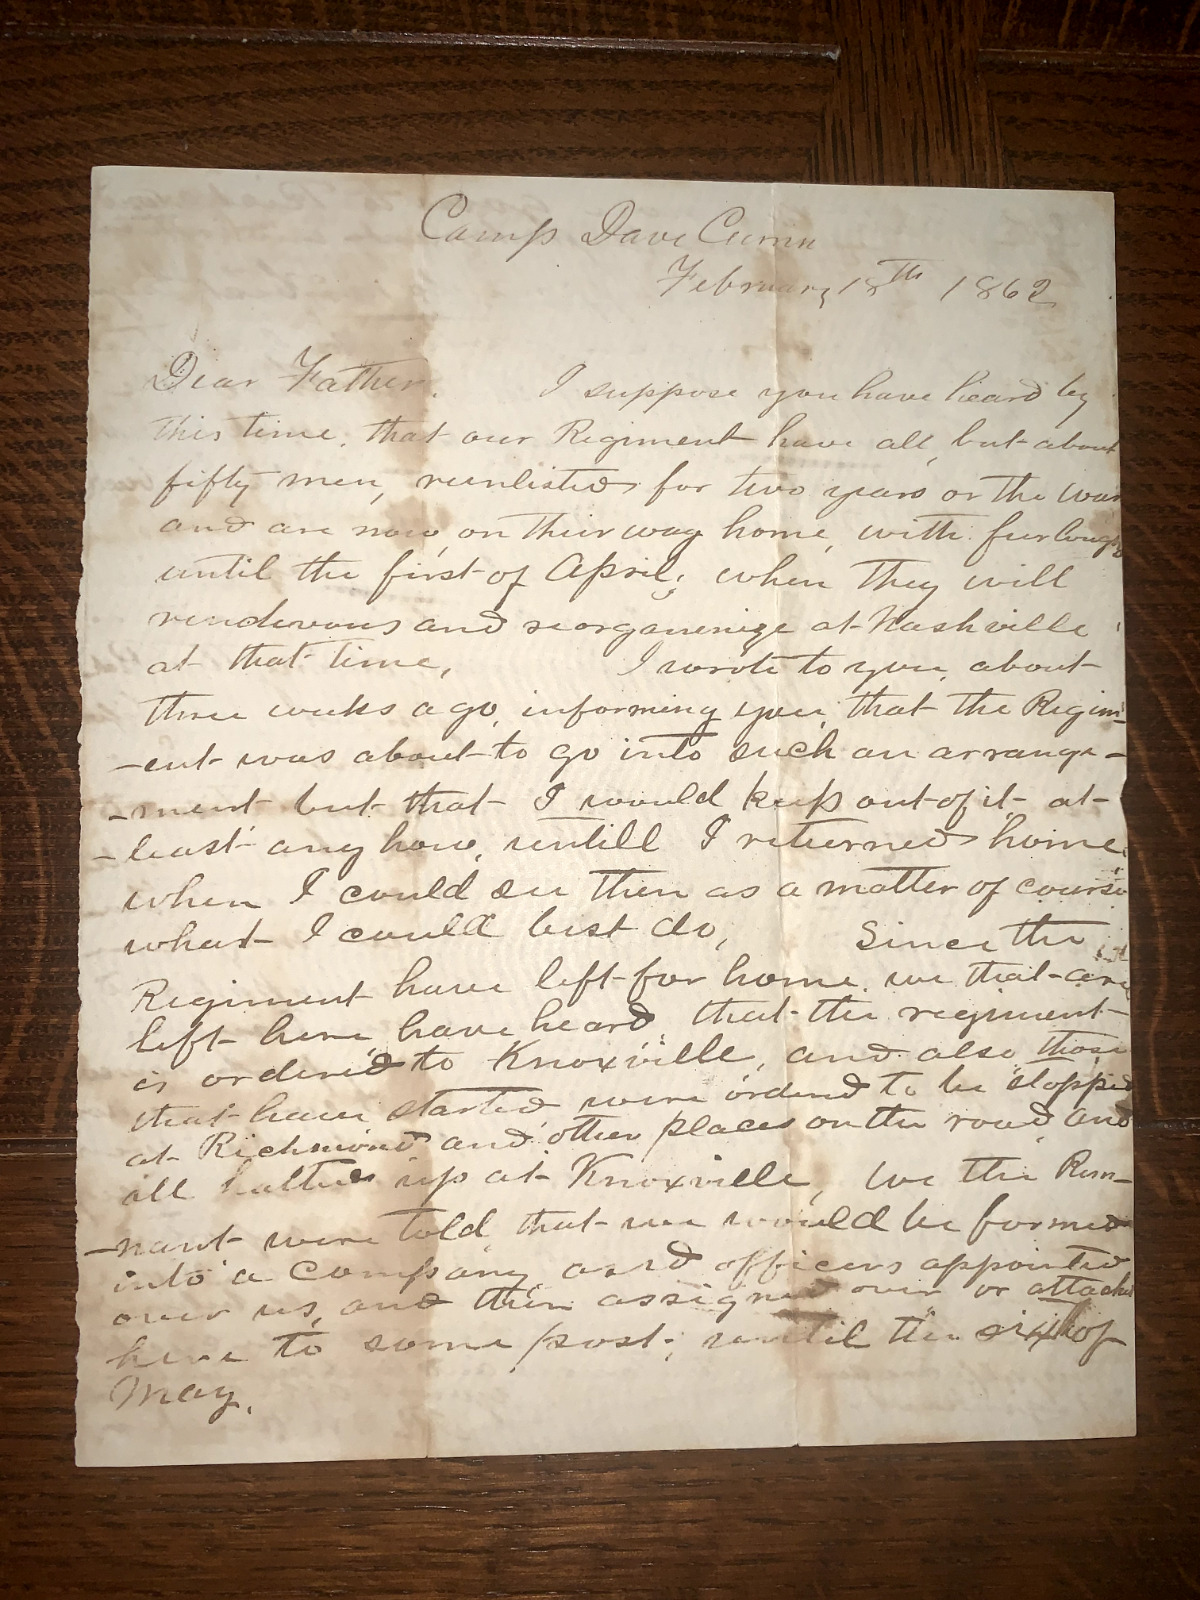 Camp Dave Currin
February 18th 1862
Dear Father. I suppose you have heard by
this time, that our Regiment have all, but about
fifty men, reinlisted for two years or the war
and are now, on their way home, with furloughs
until the first of April; when they will
rendevous and reorganenize at Nashville
at that time, I wrote to you, about
three weeks ago, informing you, that the Regim-
-ent was about to go into such an arrange-
-ment but that I would keep out of it at-
-least any how, untill I returned home,
when I could see then as a matter of course
what I could best do, Since the
Regiment have left for home, we that are
left here have heard, that the regiment
is ordered to Knoxville, and also those
that have started were ordered to be stopped
at Richmond and other places on the road, and
all halted up at Knoxville, We the Rem-
-nant were told, that we would be formed
into a Company, and officers appointed
over us, and then assigned over or attach
here to some post; until the six of
May.